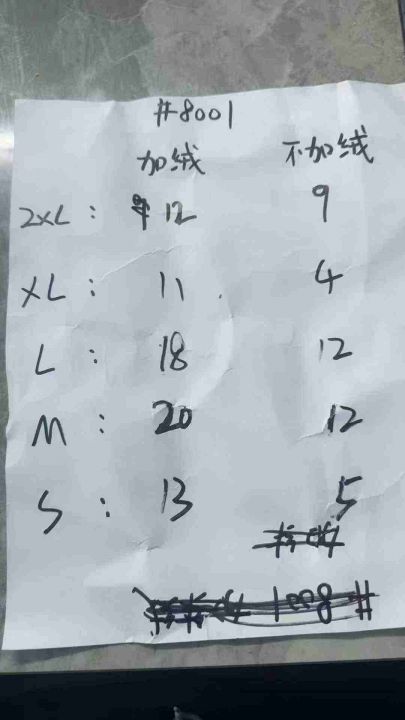 #8001
加绒 不加绒
2XL: 12 9
XL: 11 4
L: 18 12
M: 20 12
S: 13 5